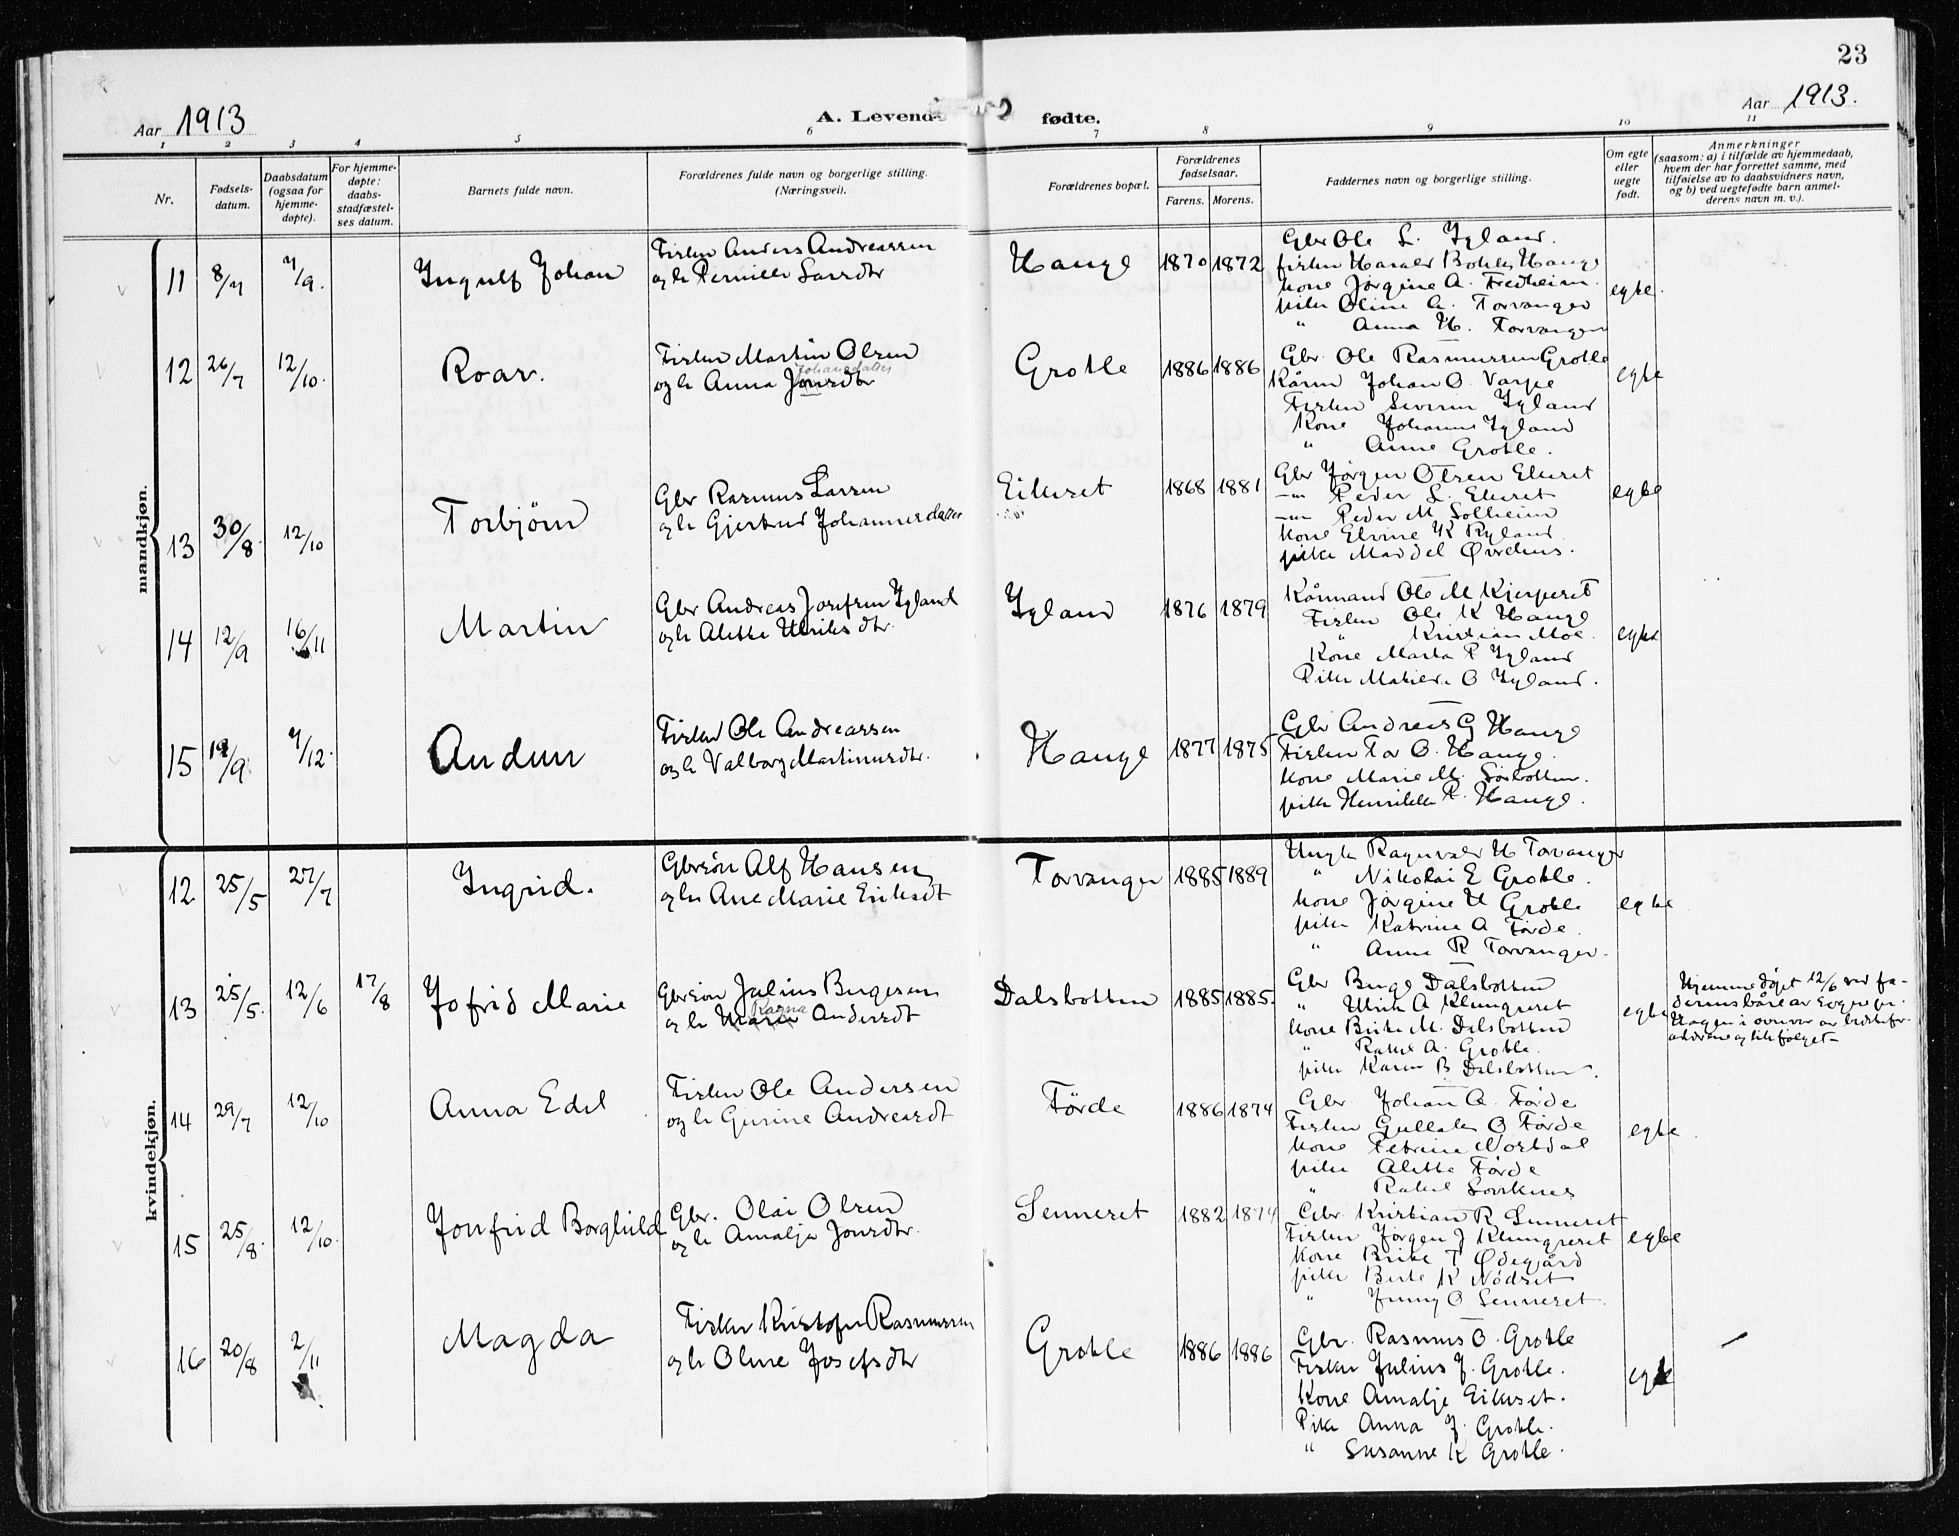 23
Aar 1913
A. Levende fødte.
Aar 1913.
1 2 3 4 5 6 7 8 9 10 11
Nr.
Fødsels-
datum.
Daabsdatum
(ogsaa for
hjemme-
døpte).
For hjemme-
døpte:
daabs-
stadfæstel-
ses datum.
Barnets fulde navn.
Forældrenes fulde navn og borgerlige stilling.
(Næringsvei).
Forældrenes bopæl.
Forældrenes
fødselsaar.
Farens. Morens.
Faddernes navn og borgerlige stilling.
Om egte
eller
uegte
født.
Anmerkninger
(saasom: a) i tilfælde av hjemmedaab,
hvem der har forrettet samme, med
tilføielse av to daabsvidners navn,
og b) ved uegtefødte barn anmel-
derens navn m. v.).
mandkjøn.
11 8/7 7/9. Ingulf Johan
Fisker Anders Andreassen
og h Pernille Larsdtr
Hauge 1870 1872
Gbr Ole L. Igland.
fisker Harald Hauge
kone Jørgine A. Fredheim.
pike Oline A. Torvanger
" Anna H. Torvanger
egte.
12 26/7 12/10. Roar.
Fisker Martin Olsen
Johansdatter
og h Anna Jonsdtr
Grotle 1886 1886
Gbr. Ole Rasmussen Grotle
Kårm Johan O. Varpe
Fisker Severin Igland
Kone Johanne Igland
" Anne Grotle.
egte
13 30/8. 12/10 Torbjörn
Gbr Rasmus Larsen
og h Gjertrud Johannesdatter
Eikeset 1868 1881
Gbr Jörgen Olsen Ekeset
Peder L. Ekeset
Peder M Solheim
kone Elvine K Ryland.
pike Maddel Øvrehus.
egte
14 12/9 16/11 Martin
Gbr Andreas Josefsen Igland
og h Alette Ulriksdtr.
Igland 1876 1879
Kårmand Ole M
Fisker Ole K Hauge
" Kristian Moe.
Kone Marta R Igland
Pike O Igland.
egte
15 19/9. 7/12. Audun
Fisker Ole Andreassen
og h Valborg Martinusdtr.
Hauge 1877 1875
Gbr Andreas G Hauge
Fisker Tor O. Hauge.
kone Marie M.
pike Henrikke R. Hauge.
kvindekjøn.
12 25/5 27/7 Ingrid.
Gbrsön Alf Hansen
og h Ane Marie Eriksdt
Torvanger 1885 1889
Ungk Ragnvald H Torvanger
" Nikolai E Grotle.
kone Jørgine H Grotle
pike Katrine A Førde.
" Anna R Torvanger.
egte
13 25/5. 12/6 17/8 Jofrid Marie
Gbrsön Julius Bugesen
Ragna
og h Marie Andersdt
Dalsbotten 1885 1885.
Gbr Buge Dalsbotten
" Ulrik A Klungreset
kone Birte M. Dalsbotten
" Rakel A. Grotle.
pike Karen B Dalsbotten.
egte
Hjemmedøpt 12/6 ved fa-
derens båre av Sogepr.
Hagen i overvær av
og likfølget
14 29/7 12/10 Anna Edel
Fisker Ole Andersen
og h Gurine Andreasdt
Förde 1886 1874
Gbr. Johan A. Förde
Fisker O Förde
kone Petrine Nordal
pike Alette Förde
" Rakel
egte
15 25/8. 12/10. Jonfrid Borghild
Gbr. Olai Olsen
og h Amalja Jonsdtr.
Senneset 1882 1874
Gbr. Kristian R Senneset
Fisker Jørgen J Klungreset
Kone Brite T Ødegård
pike Berte K Nødset
" Jenny O Senneset.
egte
16 20/8 2/11 Magda
Fisker Kristofer Rasmussen
og h Oline Josefsdtr
Grotle 1886 1886
Gbr. Rasmus O. Grotle
Fisker Julius J. Grotle.
Kone Amalje Eikeset.
Pike Anna J. Grotle.
" Susanne K Grotle.
egte